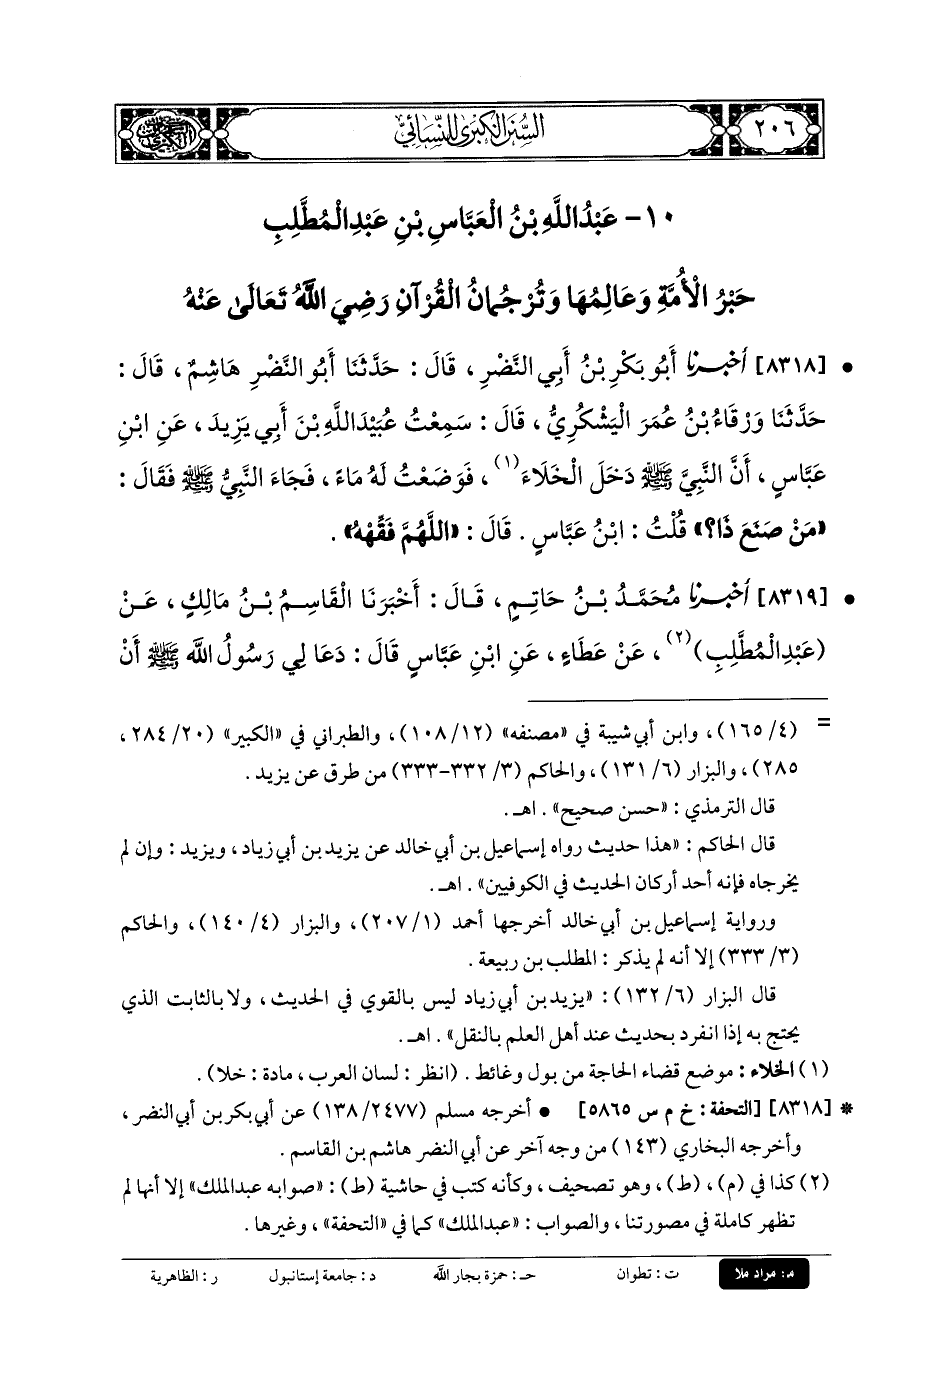 ٢٠٦
السنن الكبرى للنسائي
١٠- عَبْدُاللَّهِ بْنُ الْعَبَّاسِ بْنِ عَبْدِالْمُطَّلِبِ
حَبْرُ الْأُمَّةِ وَعَالِمُهَا وَتُرْجُمَانُ الْقُرْآنِ رَضِيَ اللَّهُ تَعَالَىٰ عَنْهُ
• [٨٣١٨] أخبرنا أَبُو بَكْرِ بْنُ أَبِي النَّضْرِ، قَالَ : حَدَّثَنَا أَبُو النَّضْرِ هَاشِمٌ، قَالَ :
حَدَّثَنَا وَرْقَاءُ بْنُ عُمَرَ الْيَشْكُرِيُّ، قَالَ : سَمِعْتُ عُبَيْدَاللَّهِ بْنَ أَبِي يَزِيدَ، عَنِ ابْنِ
عَبَّاسٍ، أَنَّ النَّبِيَّ ﷺ دَخَلَ الْخَلَاءَ(١)، فَوَضَعْتُ لَهُ مَاءً، فَجَاءَ النَّبِيُّ ﷺ فَقَالَ :
«مَنْ صَنَعَ ذَا؟» قُلْتُ : ابْنُ عَبَّاسٍ. قَالَ : «اللَّهُمَّ فَقِّهْهُ».
• [٨٣١٩] أخبرنا مُحَمَّدُ بْنُ حَاتِمٍ، قَالَ : أَخْبَرَنَا الْقَاسِمُ بْنُ مَالِكٍ، عَنْ
(عَبْدِالْمُطَّلِبِ)(٢)، عَنْ عَطَاءٍ، عَنِ ابْنِ عَبَّاسٍ قَالَ : دَعَا لِي رَسُولُ اللَّهِ ﷺ أَنْ
= (٤/ ١٦٥)، وابن أبي شيبة في «مصنفه» (١٢/ ١٠٨)، والطبراني في «الكبير» (٢٠/ ٢٨٤،
٢٨٥)، والبزار (٦/ ١٣١)، والحاكم (٣/ ٣٣٢-٣٣٣) من طرق عن يزيد.
قال الترمذي : «حسن صحيح». اهـ.
قال الحاكم : «هذا حديث رواه إسماعيل بن أبي خالد عن يزيد بن أبي زياد، ويزيد : وإن لم
يخرجاه فإنه أحد أركان الحديث في الكوفيين». اهـ.
ورواية إسماعيل بن أبي خالد أخرجها أحمد (١/ ٢٠٧)، والبزار (٤/ ١٤٠)، والحاكم
(٣/ ٣٣٣) إلا أنه لم يذكر : المطلب بن ربيعة.
قال البزار (٦/ ١٣٢) : «يزيد بن أبي زياد ليس بالقوي في الحديث، ولا بالثابت الذي
يحتج به إذا انفرد بحديث عند أهل العلم بالنقل». اهـ.
(١) الخلاء : موضع قضاء الحاجة من بول وغائط. (انظر : لسان العرب، مادة : خلا).
* [٨٣١٨] [التحفة : خ م س ٥٨٦٥] • أخرجه مسلم (٢٤٧٧/ ١٣٨) عن أبي بكر بن أبي النضر،
وأخرجه البخاري (١٤٣) من وجه آخر عن أبي النضر هاشم بن القاسم.
(٢) كذا في (م)، (ط)، وهو تصحيف، وكأنه كتب في حاشية (ط) : «صوابه عبدالملك» إلا أنها لم
تظهر كاملة في مصورتنا، والصواب : «عبدالملك» كما في «التحفة»، وغيرها.
م: مراد ملا ت : تطوان حـ : حمزة بجار الله د : جامعة إستانبول ر : الظاهرية